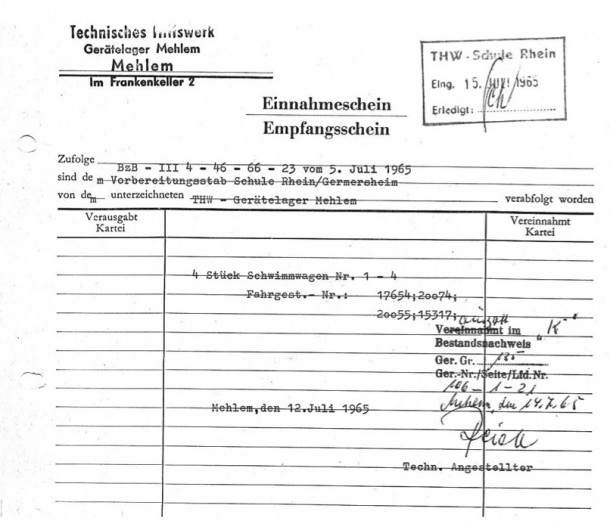 Technisches Hilfswerk
Gerätelager Mehlem
Mehlem
Im Frankenkeller 2
THW - Schule Rhein
Eing. 15. JULI 1965
Erledigt:
Einnahmeschein
Empfangsschein
Zufolge BzB - III 4 - 46 - 66 - 23 vom 5. Juli 1965
sind de m Vorbereitungsstab Schule Rhein/Germersheim
von dem unterzeichneten THW - Gerätelager Mehlem verabfolgt worden
Verausgabt Kartei
Vereinnahmt Kartei
4 Stück Schwimmwagen Nr. 1 - 4
Fahrgest.- Nr.: 17654;2oo74;
2oo55;15317;
Vereinnahmt im "K"
Bestandsnachweis
Ger. Gr.
Ger.-Nr./Seite/Lfd. Nr.
106 - 1 - 21
Mehlem,den 12.Juli 1965
Mehlem, den 14.7.65
Techn. Angestellter